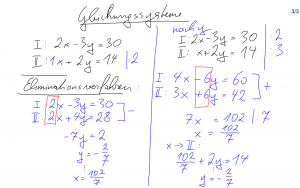 Gleichungssysteme
3/3
I: 2x-3y=30
II: 1x+2y=14 |·2
Eliminationsverfahren:
I: 2x-3y=30
II: 2x+4y=28 -
-7y=2
y=-2/7
x=102/7
nach y
I: 2x-3y=30 |·2
II: x+2y=14 |·3
I: 4x-6y=60
II: 3x+6y=42 +
7x=102 |:7
x=102/7
x→II:
102/7+2y=14
y=-2/7